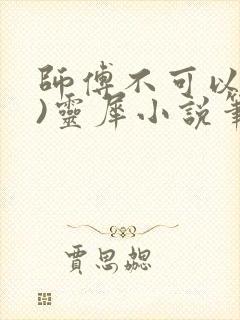 師傅不可以
)靈犀小說筆
賈思勰